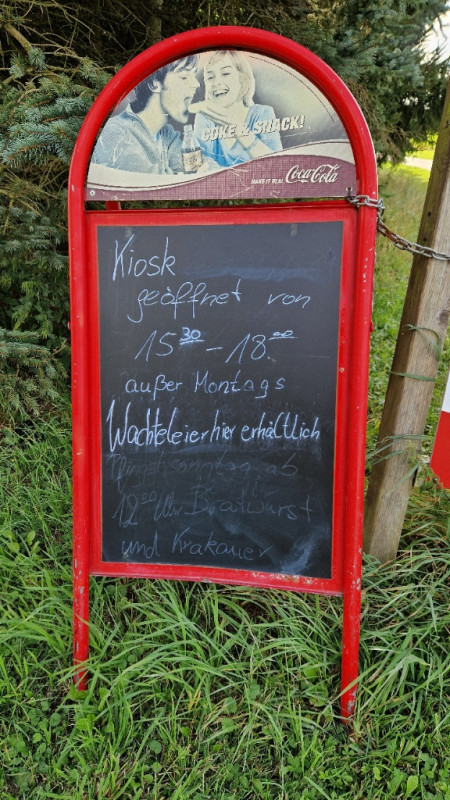 COKE & SNACK!
MAKE IT REAL Coca-Cola
Kiosk
geöffnet von
15³⁰ - 18.⁰⁰
außer Montags
Wachteleier hier erhältlich
Pfingstsonntag ab
12�00 Uhr Bratwurst
und Krakauer